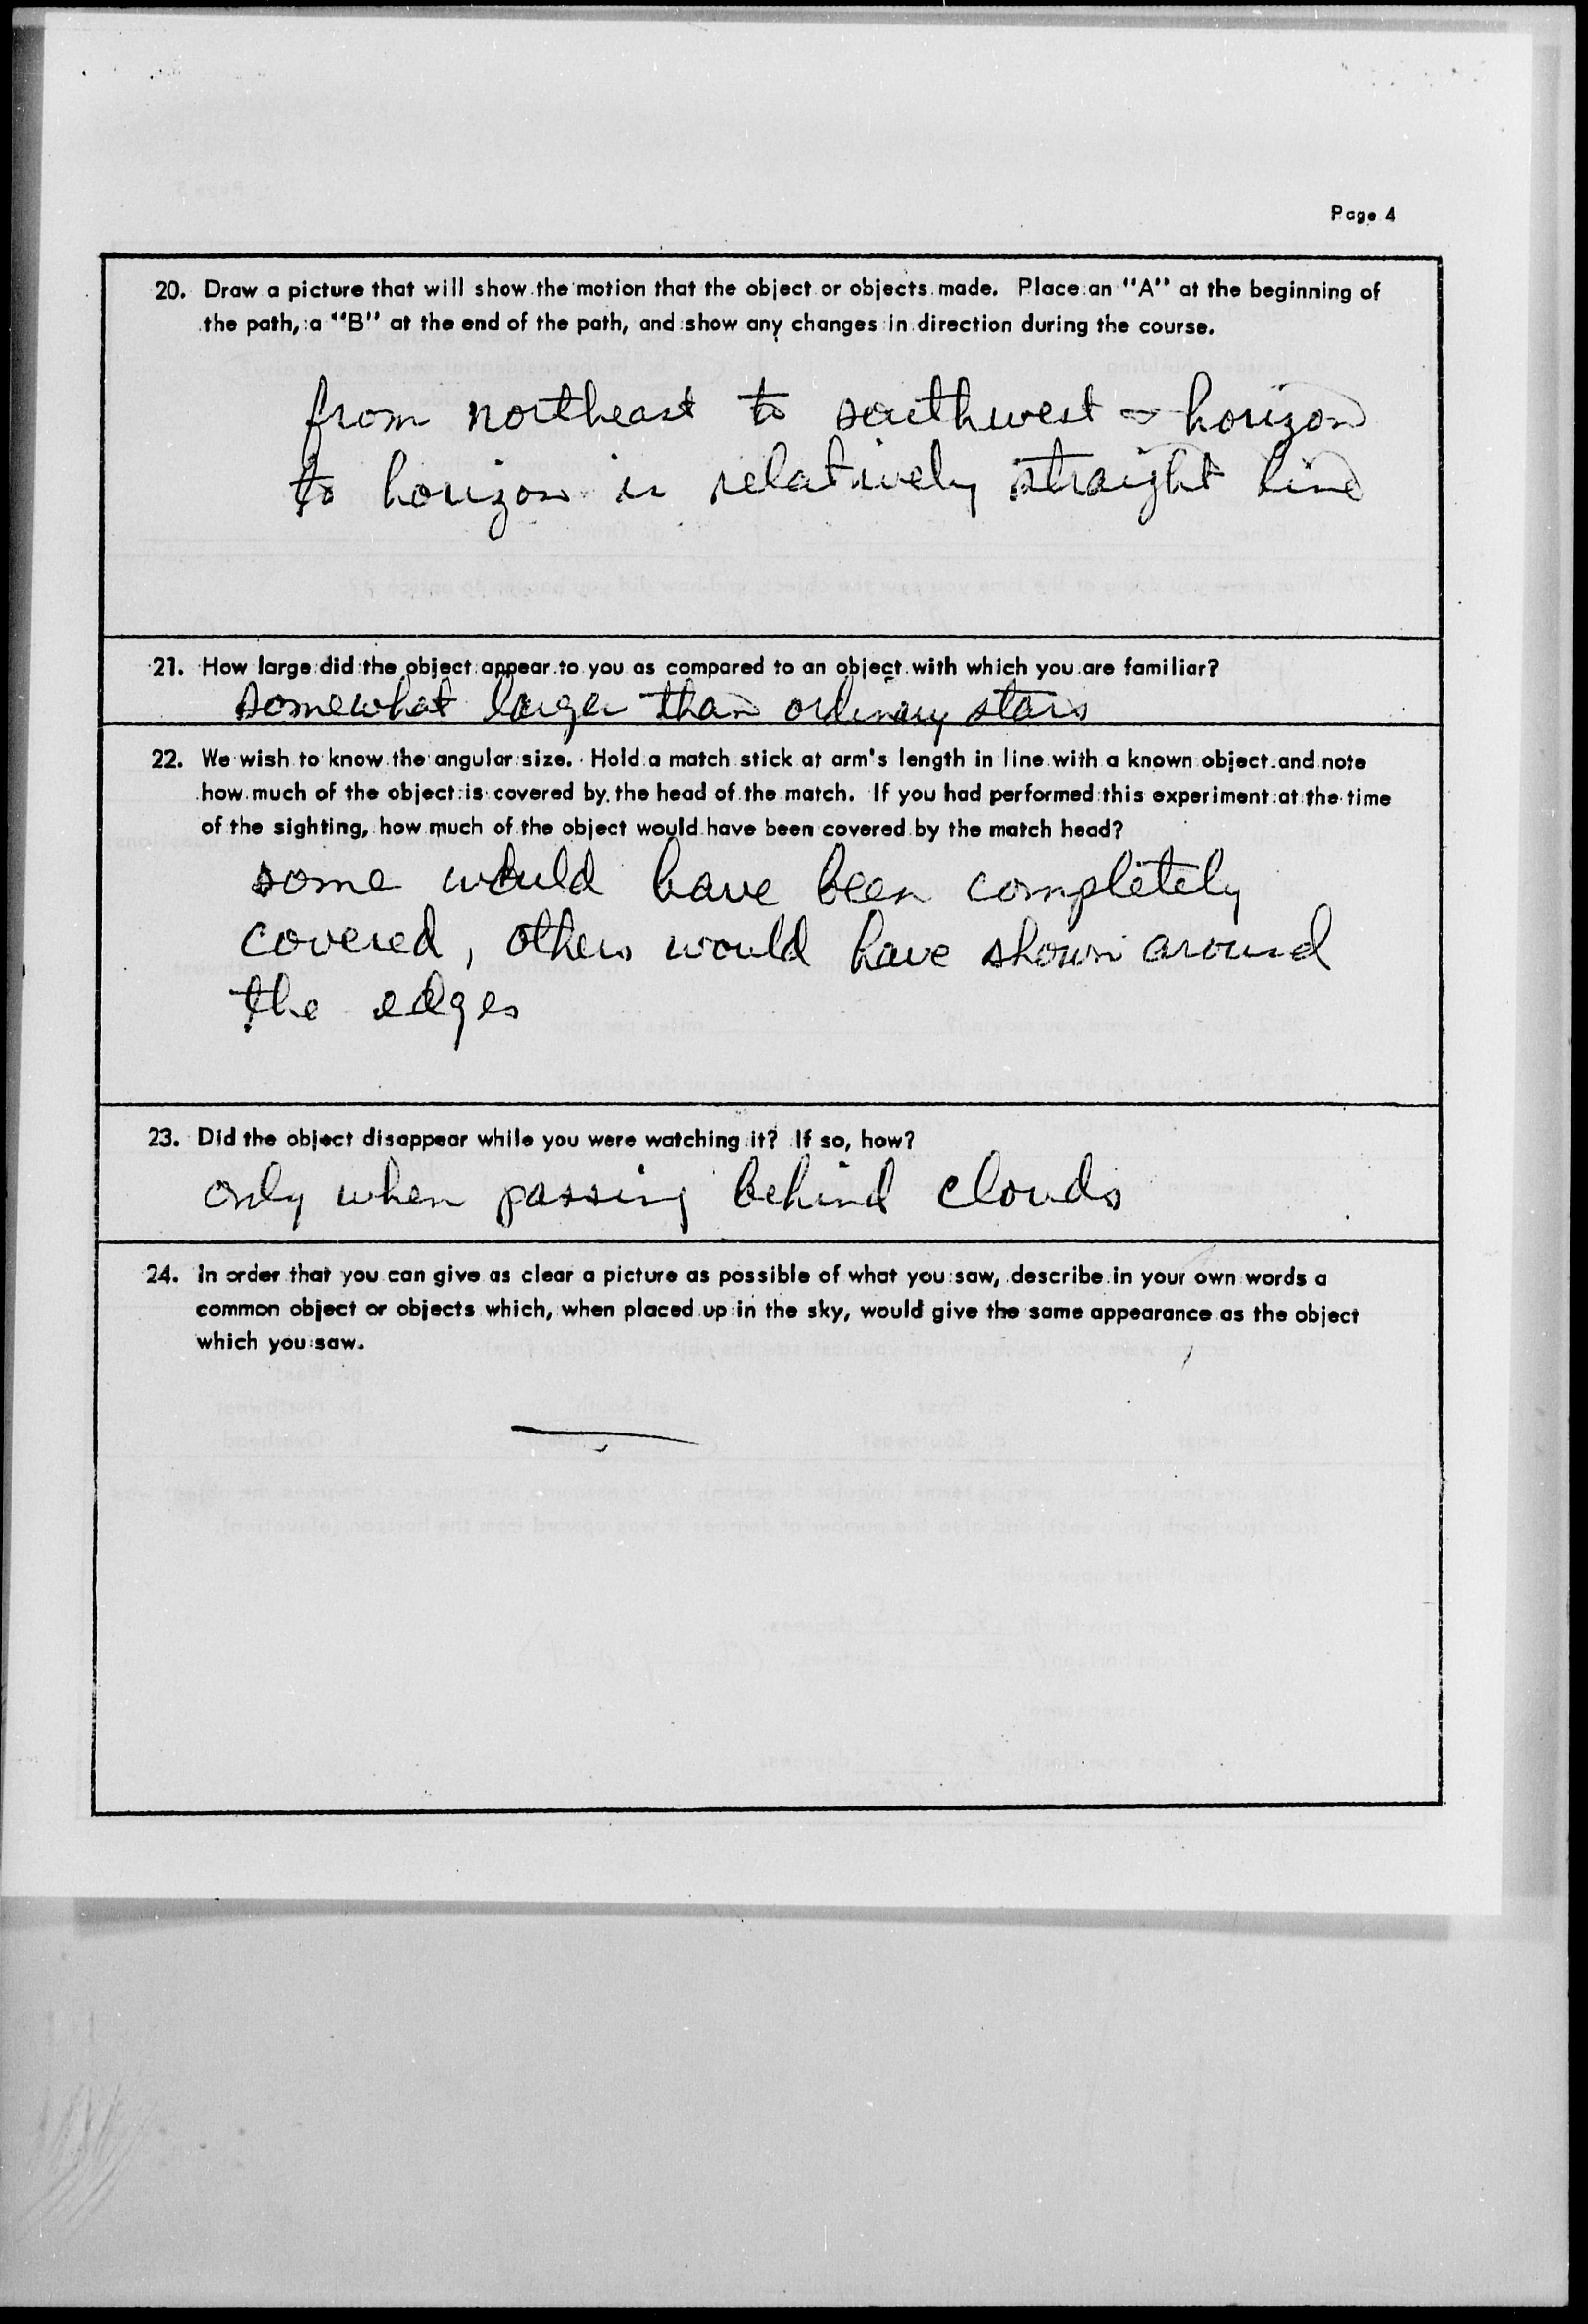 Page 4
20. Draw a picture that will show the motion that the object or objects made. Place an "A" at the beginning of
the path, a "B" at the end of the path, and show any changes in direction during the course.
from northeast to southwest - horizon
to horizon in relatively straight line
21. How large did the object appear to you as compared to an object with which you are familiar?
somewhat larger than ordinary stars
22. We wish to know the angular size. Hold a match stick at arm's length in line with a known object and note
how much of the object is covered by the head of the match. If you had performed this experiment at the time
of the sighting, how much of the object would have been covered by the match head?
some would have been completely
covered, others would have shown around
the edges
23. Did the object disappear while you were watching it? If so, how?
only when passing behind clouds
24. In order that you can give as clear a picture as possible of what you saw, describe in your own words a
common object or objects which, when placed up in the sky, would give the same appearance as the object
which you saw.